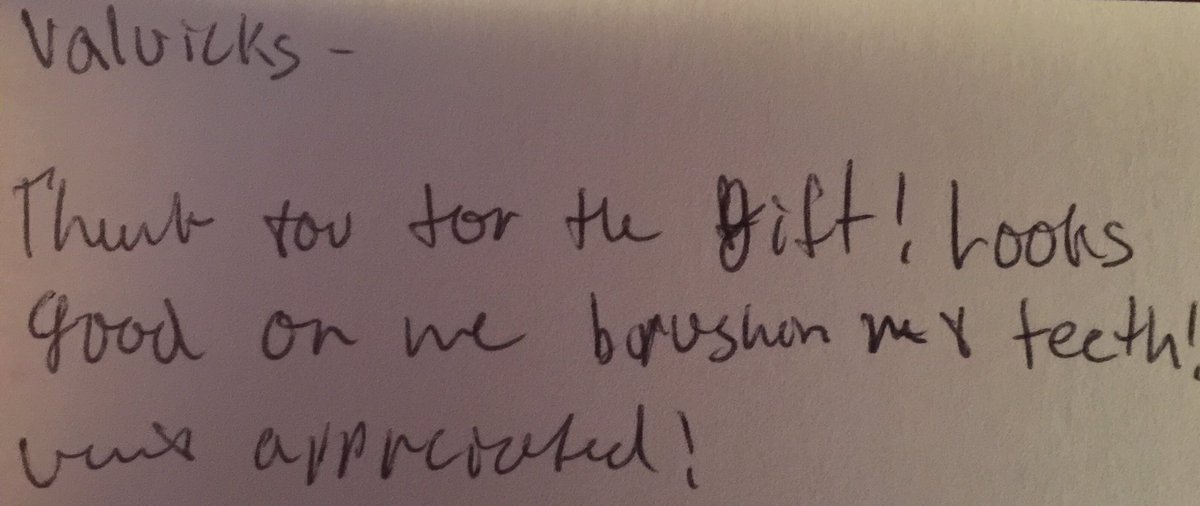 Valvicks -
Thank you for the gift! Looks
good on me brushin my teeth!
very appreciated!